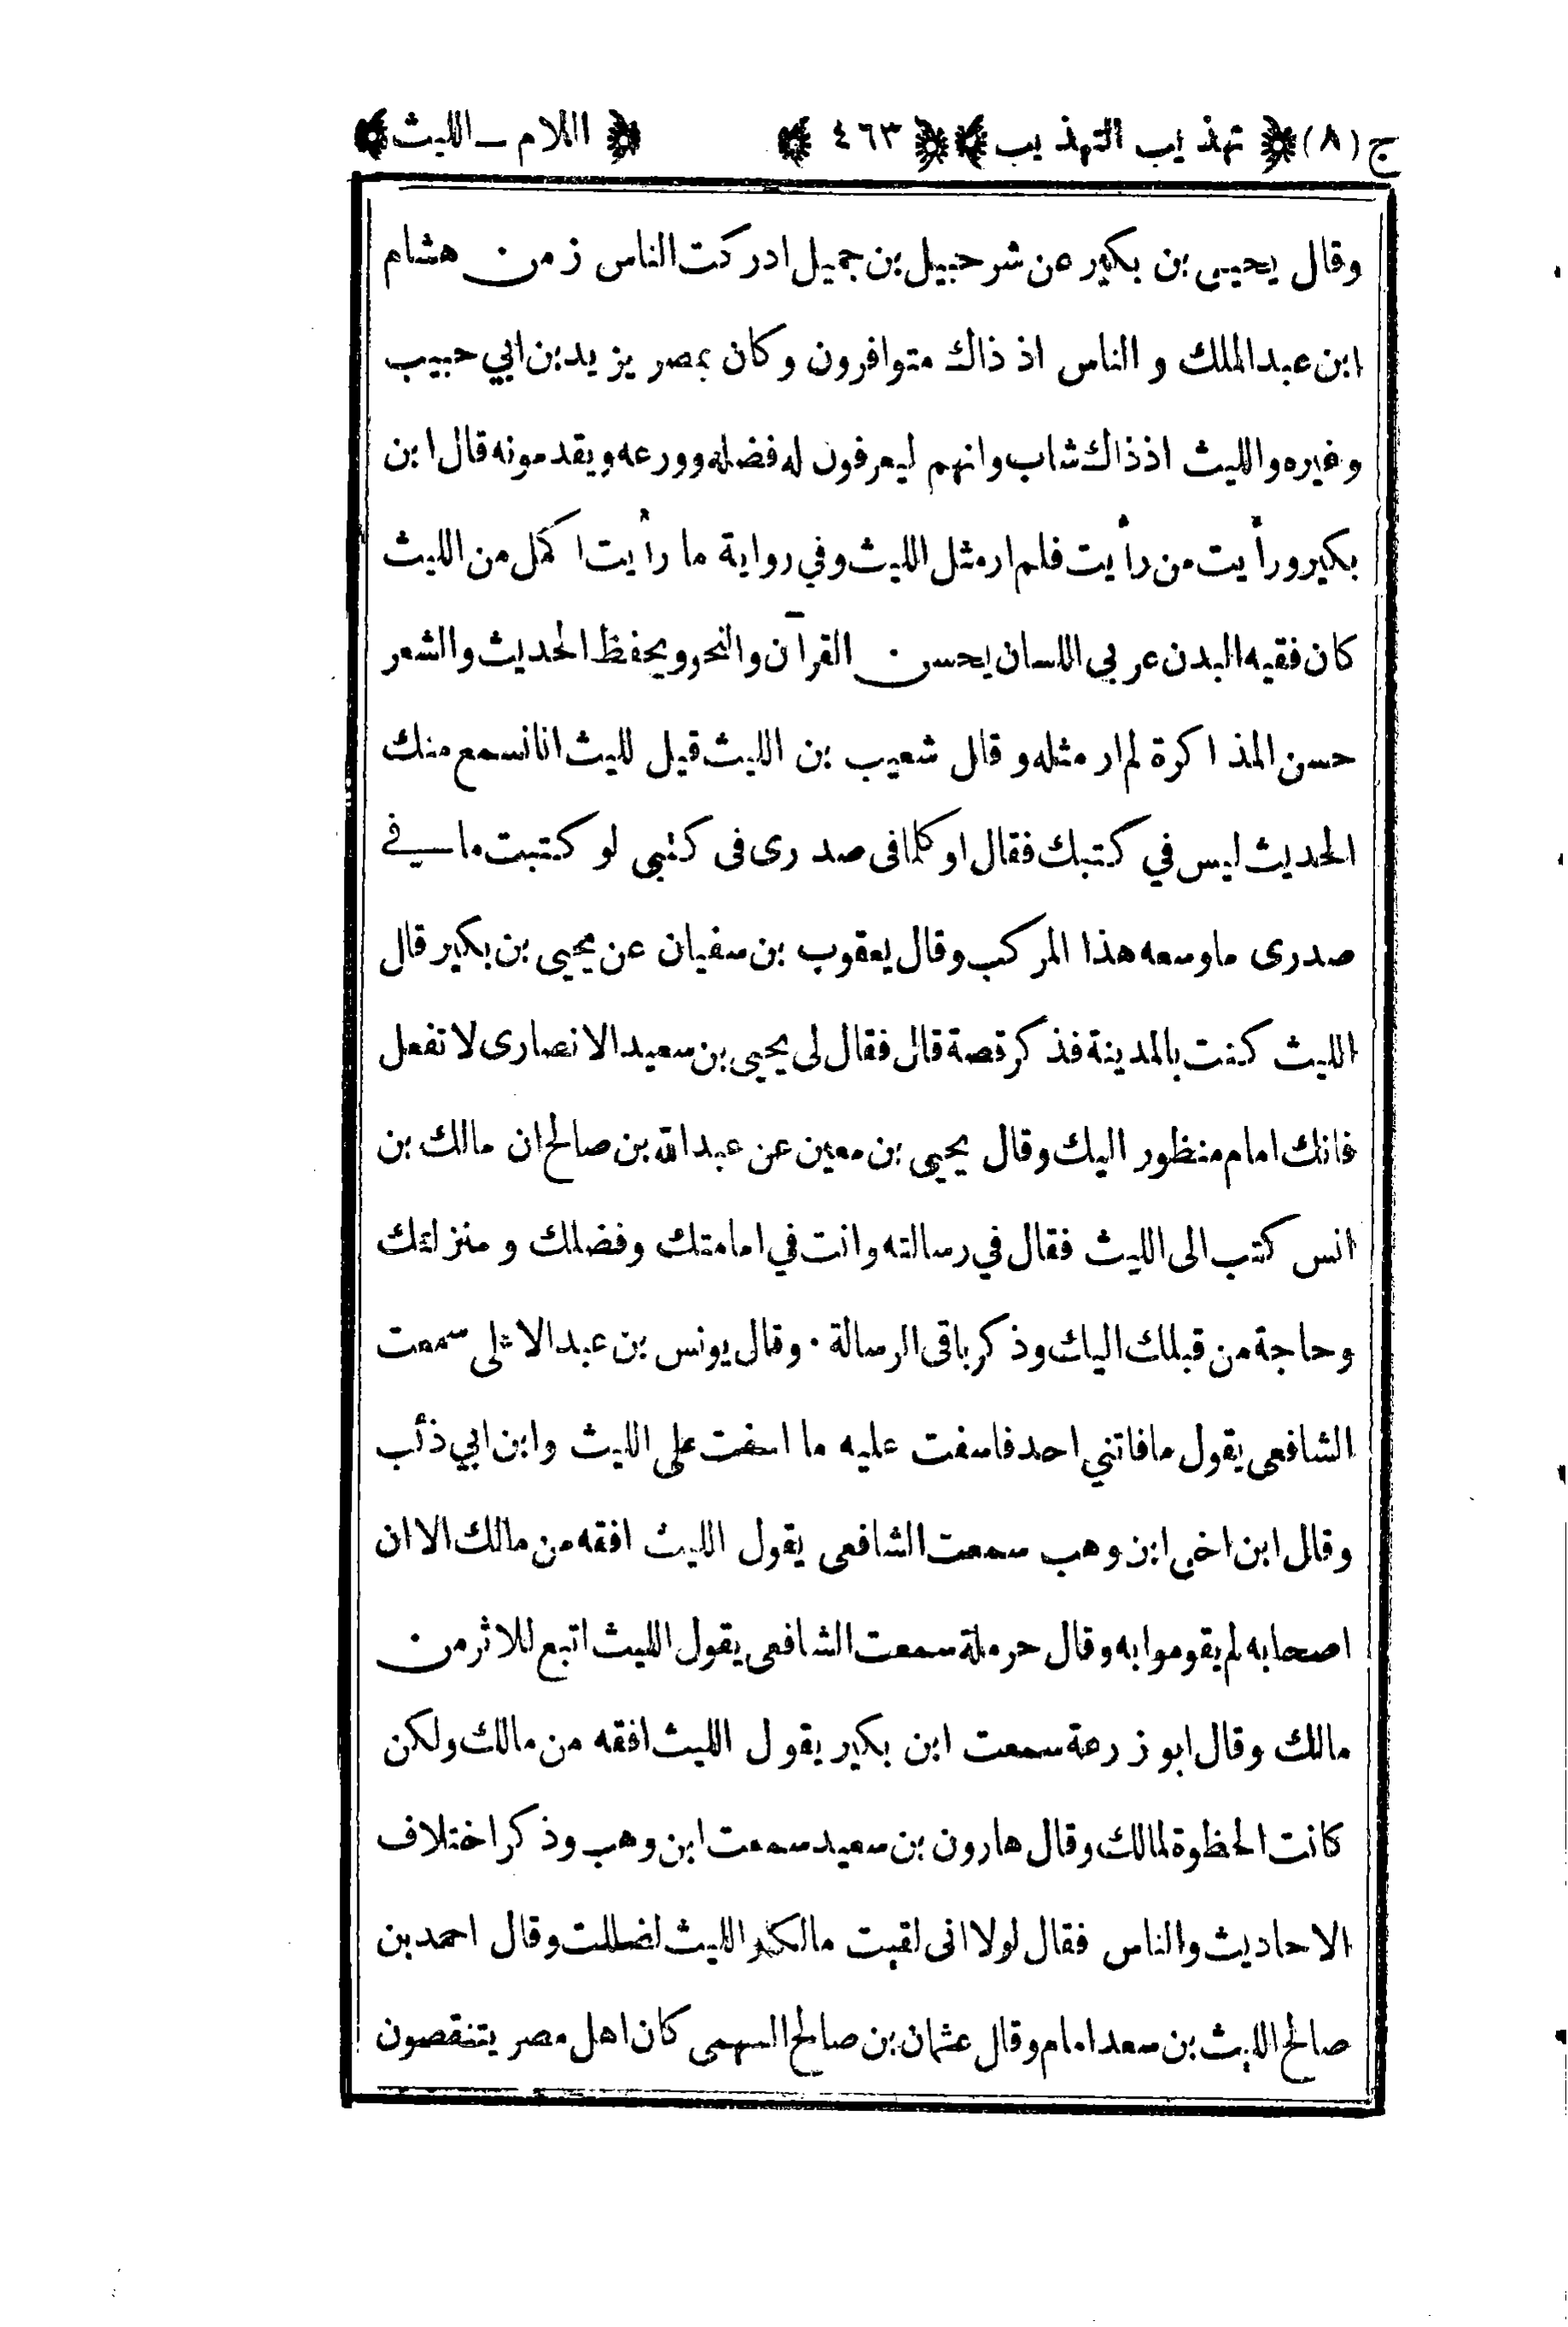 ج (٨) ﴿ تهذيب التهذيب ﴾ ﴿ ٤٦٣ ﴾ ﴿ اللام ــ الليث ﴾
وقال يحيى بن بكير عن شرحبيل بن جميل ادركت الناس زمن هشام
ابن عبدالملك و الناس اذ ذاك متوافرون وكان بمصر يزيد بن ابي حبيب
وغيره والليث اذ ذاك شاب وانهم ليعرفون له فضله وورعه ويقدمونه قال ابن
بكير ورأيت من رأيت فلم ار مثل الليث وفي رواية ما رأيت اكمل من الليث
كان فقيه البدن عربي اللسان يحسن القرآن والنحو ويحفظ الحديث والشعر
حسن المذاكرة لم ار مثله وقال شعيب بن الليث قيل لليث انا نسمع منك
الحديث ليس في كتبك فقال او كلما فى صدرى فى كتبى لو كتبت ما في
صدرى ما وسعه هذا المركب وقال يعقوب بن سفيان عن يحيى بن بكير قال
الليث كنت بالمدينة فذكر قصة قال فقال لى يحيى بن سعيد الانصارى لا تفعل
فانك امام منظور اليك وقال يحيى بن معين عن عبدالله بن صالح ان مالك بن
انس كتب الى الليث فقال في رسالته وانت في امامتك وفضلك و منزلتك
وحاجة من قبلك اليك وذكر باقى الرسالة · وقال يونس بن عبد الاعلى سمعت
الشافعى يقول ما فاتني احد فاسفت عليه ما اسفت على الليث وابن ابي ذئب
وقال ابن اخى ابن وهب سمعت الشافعى يقول الليث افقه من مالك الا ان
اصحابه لم يقوموا به وقال حرملة سمعت الشافعى يقول الليث اتبع للاثر من
مالك وقال ابو زرعة سمعت ابن بكير يقول الليث افقه من مالك ولكن
كانت الحظوة لمالك وقال هارون بن سعيد سمعت ابن وهب وذكر اختلاف
الاحاديث والناس فقال لولا انى لقيت مالكا والليث لضللت وقال احمد بن
صالح الليث بن سعد امام وقال عثمان بن صالح السهمى كان اهل مصر يتنقصون